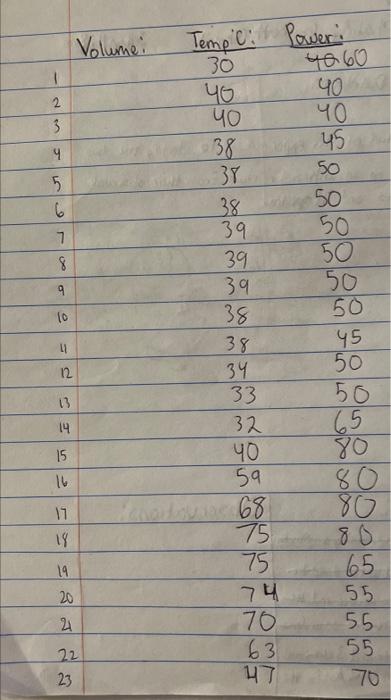 Volume: Temp°C: Power:
1 30 40 60
2 40 40
3 40 40
4 38 45
5 38 50
6 38 50
7 39 50
8 39 50
9 39 50
10 38 50
11 38 45
12 34 50
13 33 50
14 32 65
15 40 80
16 59 80
17 68 80
18 75 80
19 75 65
20 74 55
21 70 55
22 63 55
23 47 70